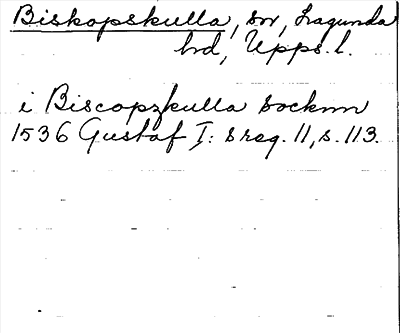 Biskopskulla, sn, Lagunda
hd, Upps. l.
i Biscopzkulla socknn
1536 Gustaf I: s reg. 11, s. 113.